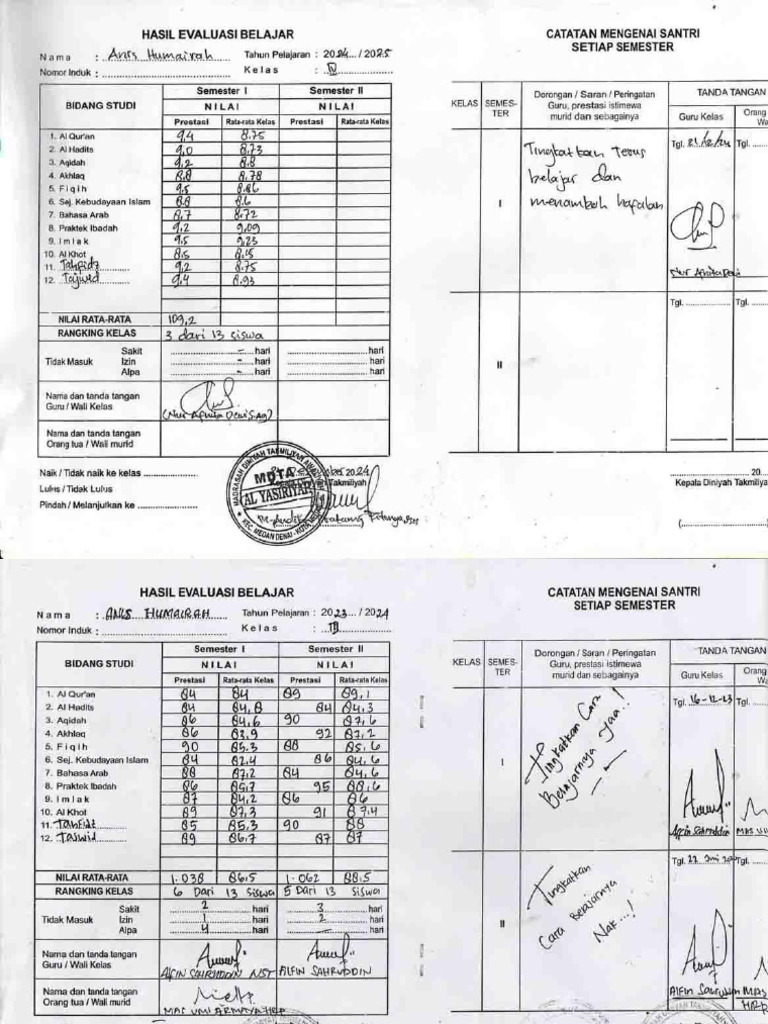 HASIL EVALUASI BELAJAR
Nama : Anis Humairah Tahun Pelajaran : 2024.../ 2025
Nomor Induk : Kelas : IV
BIDANG STUDI Semester I Semester II
NILAI NILAI
Prestasi Rata-rata Kelas Prestasi Rata-rata Kelas
1. Al Qur'an 9,4 8.75
2. Al Hadits 9,0 8,73
3. Aqidah 9,2 8.8
4. Akhlaq 8,8 8.78
5. Fiqih 9,5 8.86
6. Sej. Kebudayaan Islam 8.8 8.6
7. Bahasa Arab 8,7 8.72
8. Praktek Ibadah 9,2 9,09
9. Imlak 9,5 9.23
10. Al Khot 8,5 8.15
11. Tahfidz 9,2 8.75
12. Tajwid 9,4 8.93
NILAI RATA-RATA 109,2
RANGKING KELAS 3 dari 13 siswa
Tidak Masuk Sakit - hari hari
Izin - hari hari
Alpa - hari hari
Nama dan tanda tangan
Guru / Wali Kelas
(Nur Afnita Dewi S.Ag)
Nama dan tanda tangan
Orang tua / Wali murid
Naik / Tidak naik ke kelas
Lulus / Tidak Lulus
Pindah / Melanjutkan ke
2024
Takmiliyah
MADRASAH DINIYAH TAKMILIYAH AWALIYAH
MDTA
AL YASIRIYAH
KEC. MEDAN DENAI - KOTA
CATATAN MENGENAI SANTRI
SETIAP SEMESTER
KELAS SEMES-TER Dorongan / Saran / Peringatan Guru, prestasi istimewa murid dan sebagainya TANDA TANGAN
Guru Kelas Orang Wa
I Tingkatkan Terus
belajar dan
menambah hafalan
Tgl. 21/12/24 Tgl.
Nur Afnita Dewi
II
Tgl. Tgl.
20...
Kepala Diniyah Takmiliya
HASIL EVALUASI BELAJAR
Nama : ANIS HUMAIRAH Tahun Pelajaran : 2023.../ 2024
Nomor Induk : Kelas : III
BIDANG STUDI Semester I Semester II
NILAI NILAI
Prestasi Rata-rata Kelas Prestasi Rata-rata Kelas
1. Al Qur'an 84 84 89 89,1
2. Al Hadits 84 84,8 84 84,3
3. Aqidah 86 84,6 90 87,6
4. Akhlaq 86 83,9 92 87,2
5. Fiqih 90 85.3 88 85,6
6. Sej. Kebudayaan Islam 84 82.4 86 84,6
7. Bahasa Arab 88 87,2 84 84,6
8. Praktek Ibadah 86 85,7 95 88,6
9. Imlak 87 84,2 86 86
10. Al Khot 89 87,3 91 87,4
11. TAHFIDZ 85 85,3 90 88
12. TAJWID 89 86,7 87 87
NILAI RATA-RATA 1.038 86,5 1.062 88.5
RANGKING KELAS 6 Dari 13 Siswa 5 Dari 13 Siswa
Tidak Masuk Sakit 2 hari 3 hari
Izin 1 hari 2 hari
Alpa 4 hari - hari
Nama dan tanda tangan
Guru / Wali Kelas
ALFIN SAHRUDDIN NST ALFIN SAHRUDDIN
Nama dan tanda tangan
Orang tua / Wali murid
CATATAN MENGENAI SANTRI
SETIAP SEMESTER
KELAS SEMES-TER Dorongan / Saran / Peringatan Guru, prestasi istimewa murid dan sebagainya TANDA TANGAN
Guru Kelas Orang Wa
I Tingkatkan Cara
Belajarnya yaa..!
Tgl. 16-12-23 Tgl.
Alfin Sahruddin
II Tingkatkan
Cara Belajarnya
Nak...!
Tgl. 22 Juni Tgl.